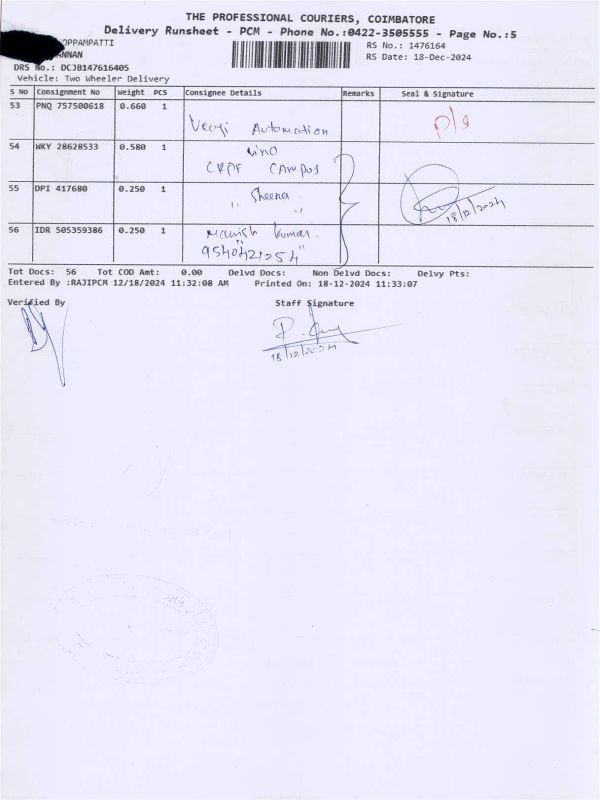 THE PROFESSIONAL COURIERS, COIMBATORE
Delivery Runsheet - PCM - Phone No.:0422-3505555 - Page No.:5
OPPAMPATTI
RS No.: 1476164
ANNAN
RS Date: 18-Dec-2024
DRS No.: DCJB147616405
Vehicle: Two Wheeler Delivery
S No Consignment No Weight PCS Consignee Details Remarks Seal & Signature
53 PNQ 757500618 0.660 1
Automation
54 WKY 28628533 0.580 1
CRPF CAMPUS
55 DPI 417680 0.250 1 Sheena
18/12/2024
56 IDR 505359386 0.250 1 Manish Kumar.
9540421254
Tot Docs: 56 Tot COD Amt: 0.00 Delvd Docs: Non Delvd Docs: Delvy Pts:
Entered By :RAJIPCM 12/18/2024 11:32:08 AM Printed On: 18-12-2024 11:33:07
Verified By Staff Signature
18/12/2024